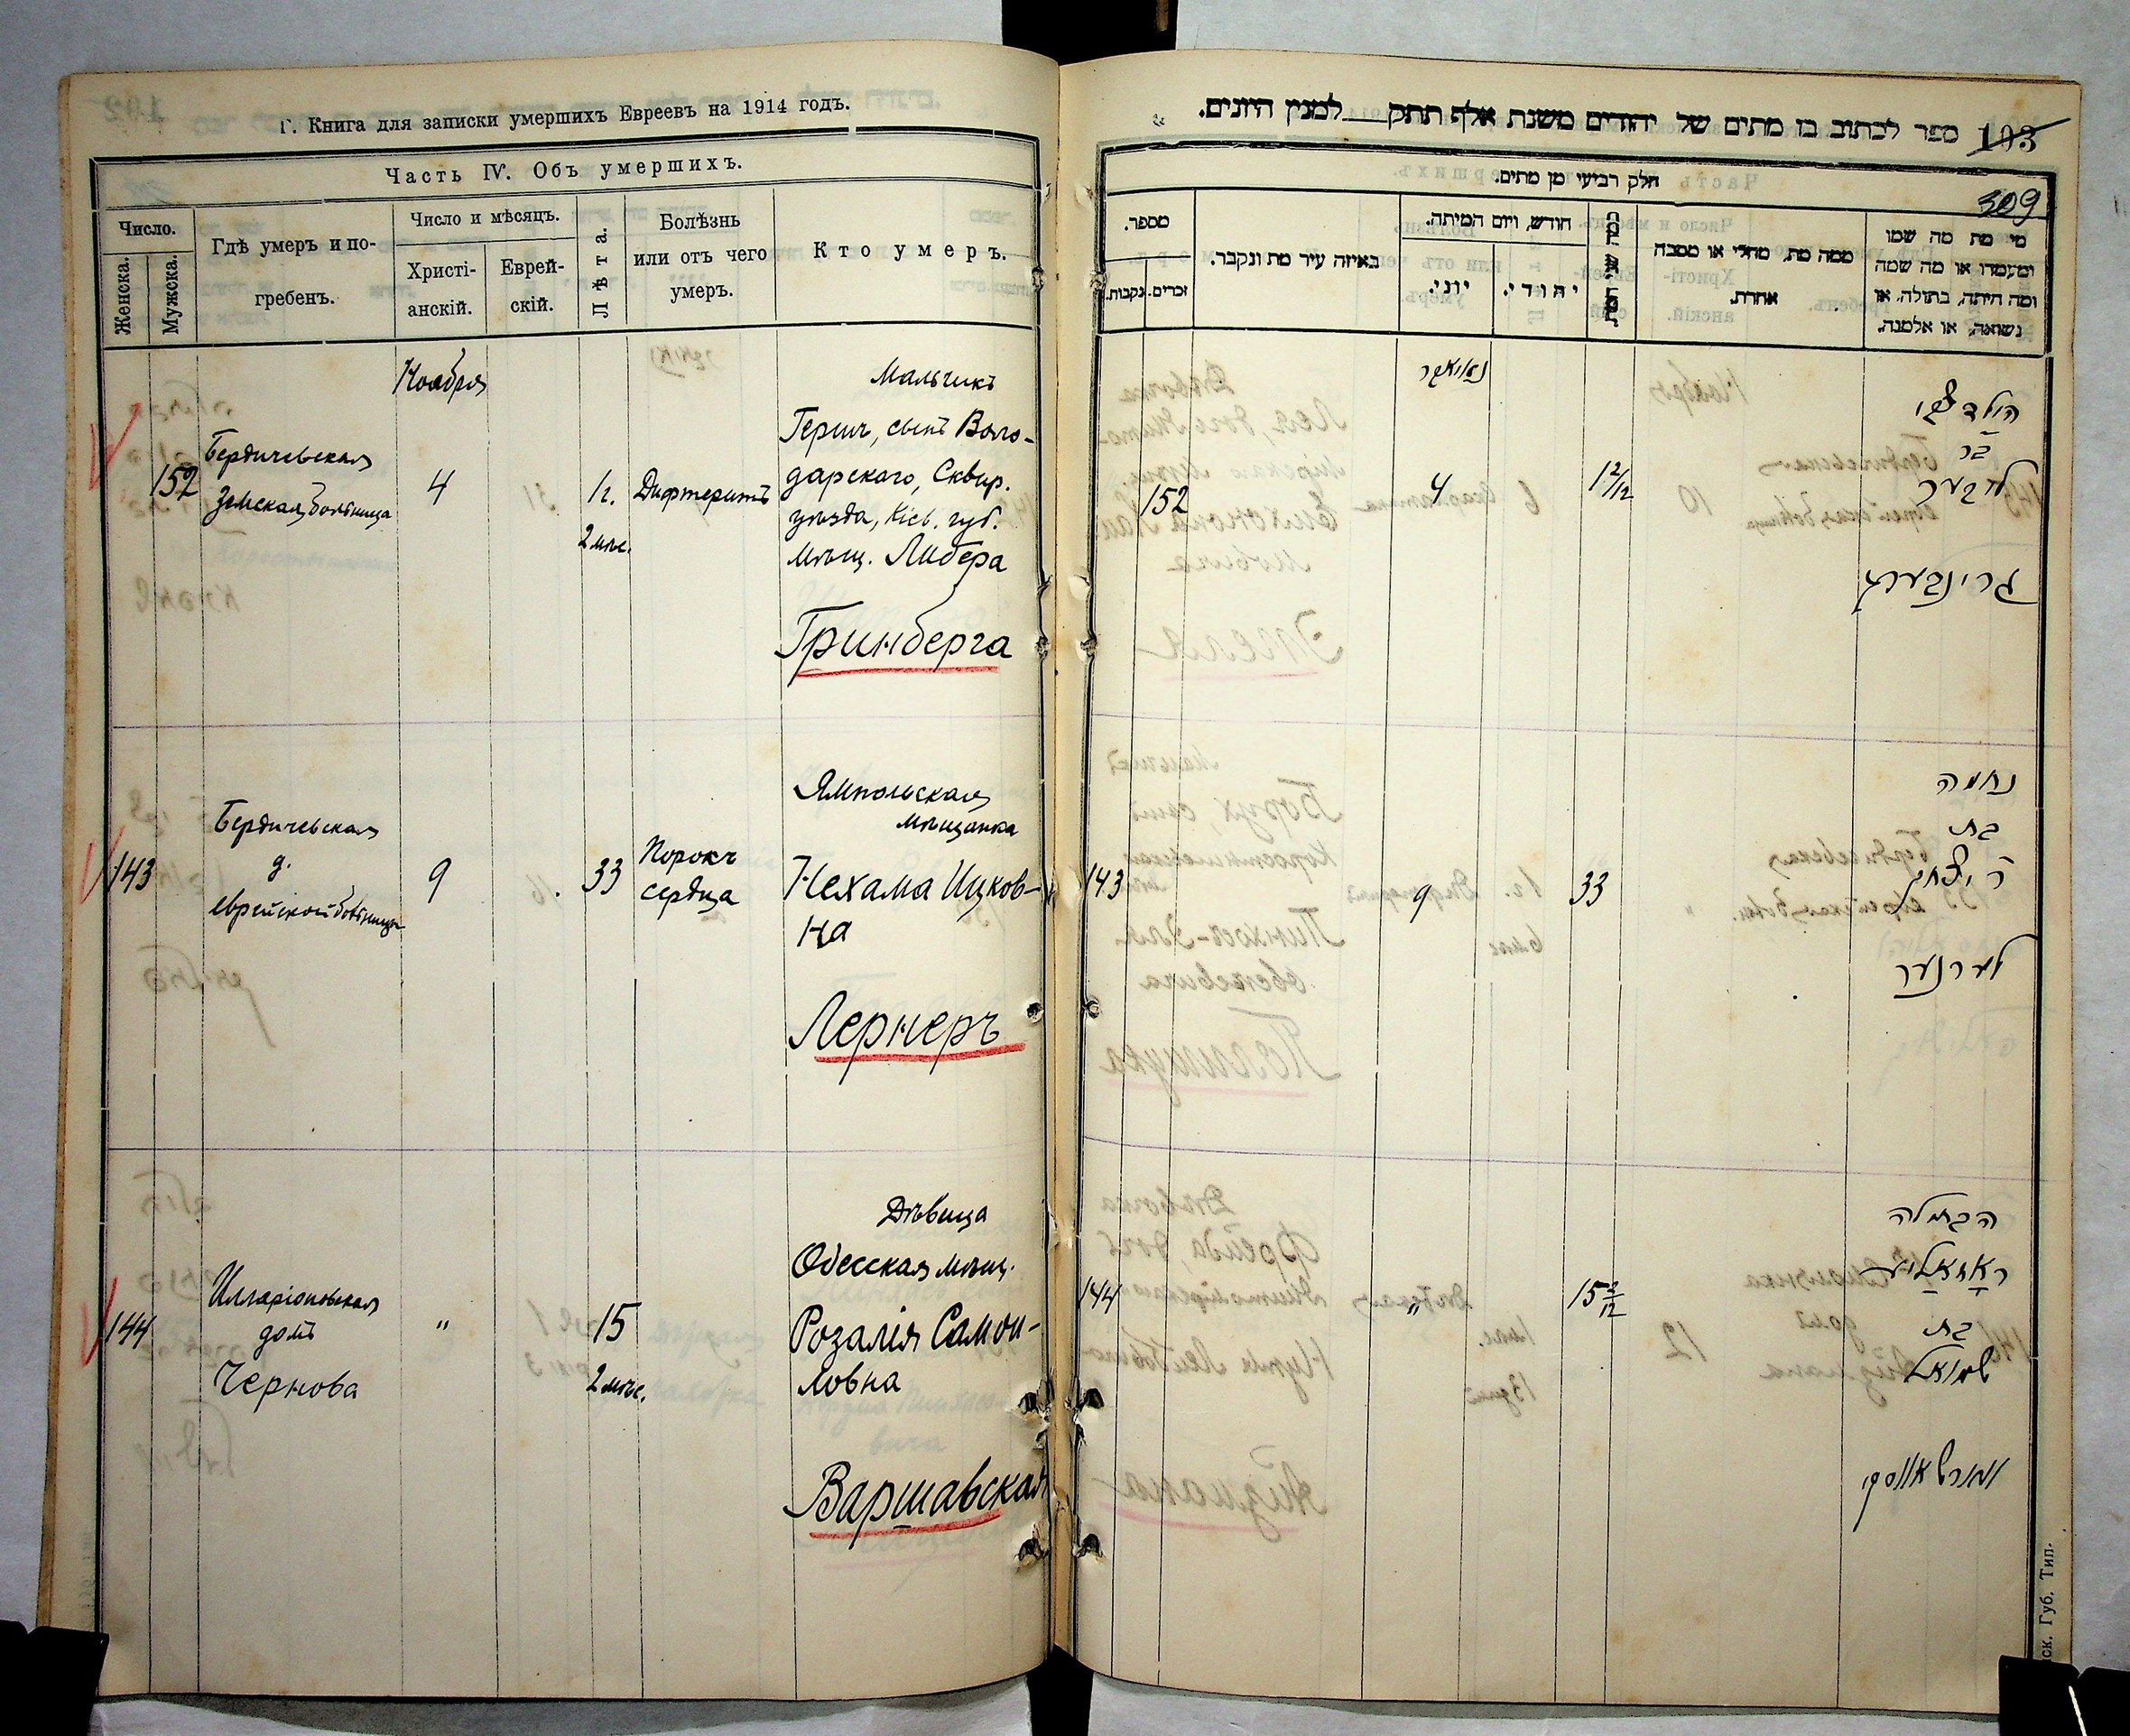 Г. Книга для записки умершихъ Евреевъ на 1914 годъ.
Часть IV. Объ умершихъ.
Число.
Женска.
Мужска.
Гдѣ умеръ и по-
гребенъ.
Число и мѣсяцъ.
Христі-
анскій.
Еврей-
скій.
Лѣта.
Болѣзнь
или отъ чего
умеръ.
Кто умеръ.
Ноября
152
Бердичевская
Земская больница
4
1 г.
2 мѣс.
Дифтеритъ
Мальчикъ
Гершъ, сынъ Воло-
дарскаго, Сквир.
уѣзда, Кіев. губ.
мѣщ. Либера
Гринберга
143
Бердичевская
д.
еврейской больницы
9
33
Порокъ
сердца
Ямпольская
мѣщанка
Нехама Ицков-
на
Лернеръ
144
Илларіоновская
домъ
Чернова
"
15
2 мѣс.
Дѣвица
Одесская мѣщ.
Розалія Самой-
ловна
Варшавская
ספר לכתוב בו מתים של יהודים משנת אלף תתק למנין היונים.
103
309
חלק רביעי מן מתים.
מספר.
נקבות.
זכרים.
באיזה עיר מת ונקבר.
חודש, ויום המיתה.
יוני.
יהודי.
כמה שני המת.
ממה מת, מחלי או מסבה
אחרת.
מי מת מה שמו
ומעמדו או מה שמה
ומה היתה, בתולה, או
נשואה, או אלמנה.
נאויאבר
152
4
1 2/12
הילד הערש
בר
ליבער
גרינבערג
143
9
33
נחמה
בת
ר׳ יצחק
לערנער
144
"
15 2/12
הבתולה
ראזאליע
בת
שמואל
ווארשאווסקי
ск. Губ. Тип.